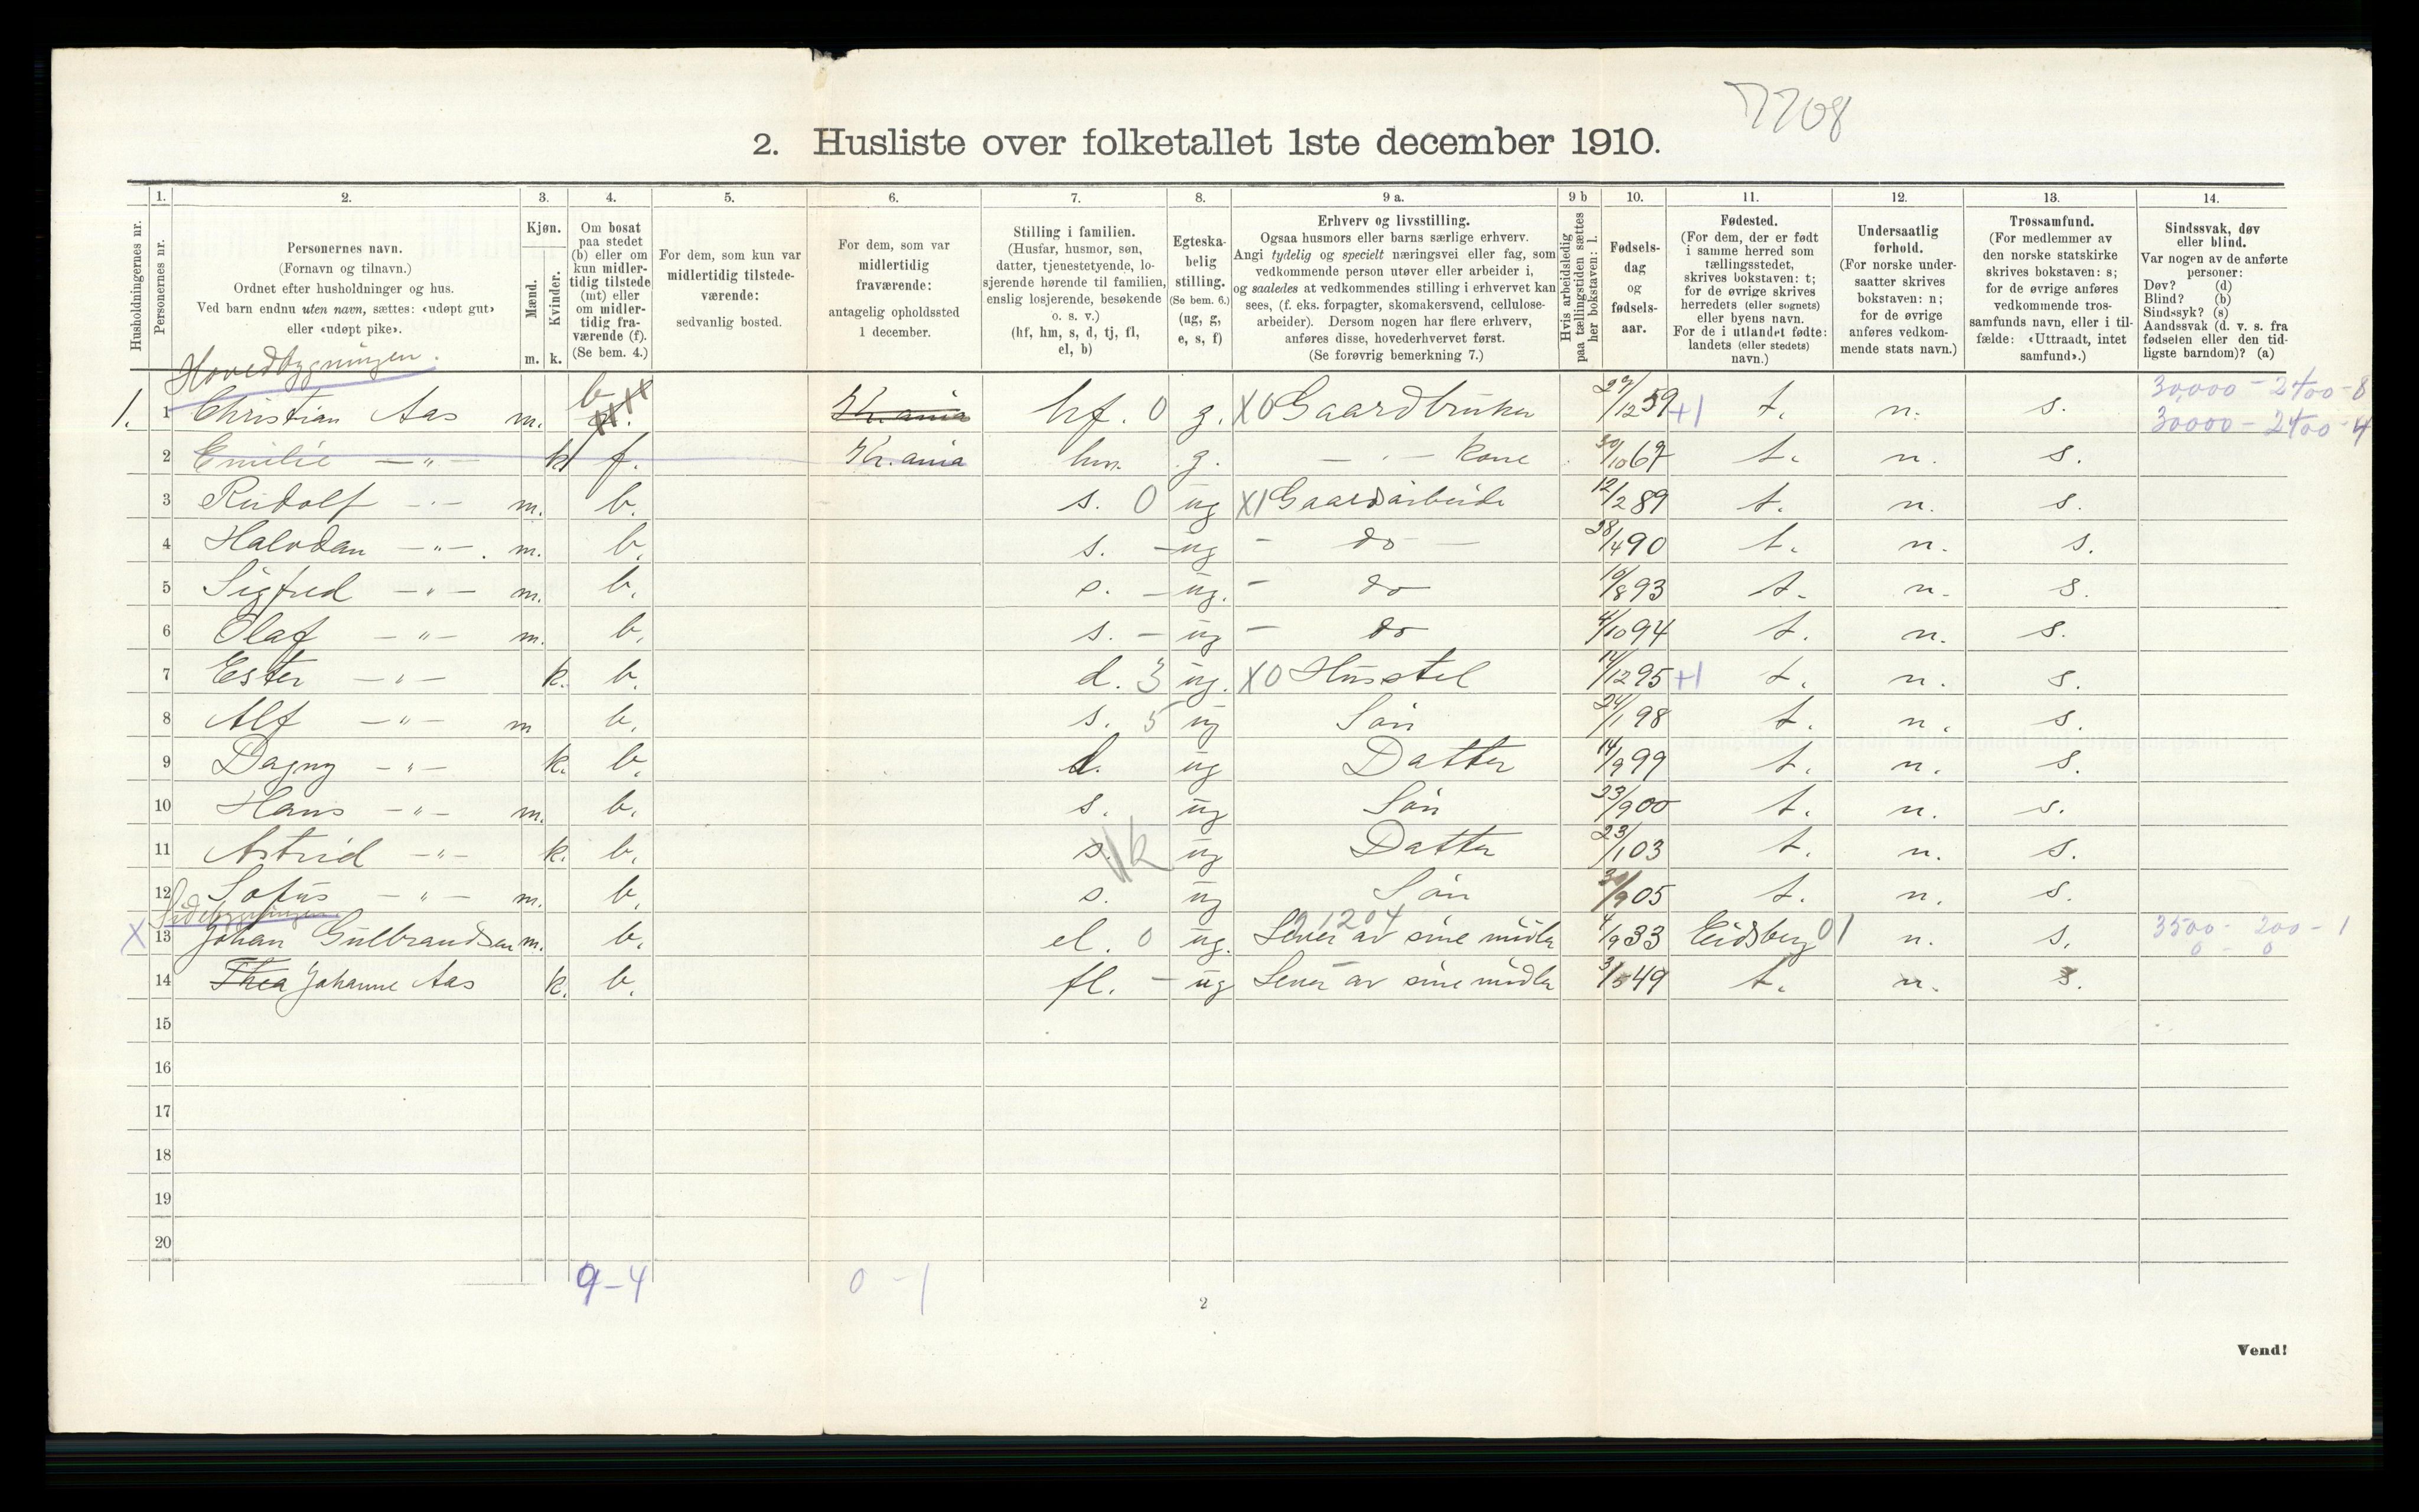 7708
2. Husliste over folketallet 1ste december 1910.
1. 2. 3. 4. 5. 6. 7. 8. 9 a. 9 b 10. 11. 12. 13. 14.
Husholdningernes nr.
Personernes nr.
Personernes navn.
(Fornavn og tilnavn.)
Ordnet efter husholdninger og hus.
Ved barn endnu uten navn, sættes: «udøpt gut»
eller «udøpt pike».
Kjøn.
Mænd.
Kvinder.
m. k.
Om bosat
paa stedet
(b) eller om
kun midler-
tidig tilstede
(mt) eller
om midler-
tidig fra-
værende (f).
(Se bem. 4.)
For dem, som kun var
midlertidig tilstede-
værende:
sedvanlig bosted.
For dem, som var
midlertidig
fraværende:
antagelig opholdssted
1 december.
Stilling i familien.
(Husfar, husmor, søn,
datter, tjenestetyende, lo-
sjerende hørende til familien,
enslig losjerende, besøkende
o. s. v.)
(hf, hm, s, d, tj, fl,
el, b)
Egteska-
belig
stilling.
(Se bem. 6.)
(ug, g,
e, s, f)
Erhverv og livsstilling.
Ogsaa husmors eller barns særlige erhverv.
Angi tydelig og specielt næringsvei eller fag, som
vedkommende person utøver eller arbeider i,
og saaledes at vedkommendes stilling i erhvervet kan
sees, (f. eks. forpagter, skomakersvend, cellulose-
arbeider). Dersom nogen har flere erhverv,
anføres disse, hovederhvervet først.
(Se forøvrig bemerkning 7.)
Hvis arbeidsledig
paa tællingstiden sættes
her bokstaven: l.
Fødsels-
dag
og
fødsels-
aar.
Fødested.
(For dem, der er født
i samme herred som
tællingsstedet,
skrives bokstaven: t;
for de øvrige skrives
herredets (eller sognets)
eller byens navn.
For de i utlandet fødte:
landets (eller stedets)
navn.)
Undersaatlig
forhold.
(For norske under-
saatter skrives
bokstaven: n;
for de øvrige
anføres vedkom-
mende stats navn.)
Trossamfund.
(For medlemmer av
den norske statskirke
skrives bokstaven: s;
for de øvrige anføres
vedkommende tros-
samfunds navn, eller i til-
fælde: «Uttraadt, intet
samfund».)
Sindssvak, døv
eller blind.
Var nogen av de anførte
personer:
Døv? (d)
Blind? (b)
Sindssyk? (s)
Aandssvak (d. v. s. fra
fødselen eller den tid-
ligste barndom)? (a)
Hovedbygningen.
30,000 - 2400 - 8
1. 1 Christian Aas m. b Kr.ania hf. 0 g. X0 Gaardbruker 29/12 59 +1 t. n. s. 30000 - 2400 - 4
2 Emilie — " — k f. Kr.ania hm. g. — " — kone 30/10 67 t. n. s.
3 Rudolf — " — m. b. s. 0 ug X1 Gaardsarbeide 12/2 89 t. n. s.
4 Halvdan — " — . m. b. s. - ug - do — 28/4 90 t. n. s.
5 Sigfred — " — m. b. s. - ug. - do 10/8 93 t. n. s.
6 Olaf — " — m. b. s. - ug - do 4/10 94 t. n. s.
7 Ester — " — k. b. d. 3 ug. X0 Husstel 14/12 95 +1 t. n. s.
8 Alf — " — m b. s. 5 ug Søn 24/1 98 t. n. s.
9 Dagny — " — k. b. d. ug Datter 14/9 99 t. n. s.
10 Hans — " — m. b. s. ug Søn 23/9 00 t. n. s.
11 Astrid — " — k. b. s. k ug Datter 23/1 03 t. n. s.
12 Sofus — " — m. b. s. ug Søn 30/9 05 t. n. s.
Sidebygningen
21204
X 13 Johan Gulbrandsen m. b. el. 0 ug. Lever av sine midler 4/9 33 Eidsberg 01 n. s. 3500 - 200 - 1
0 - 0
14 Thea Johanne Aas k. b. fl. - ug Lever av sine midler 3/5 49 t. n. s.
15
16
17
18
19
20
9-4 0-1
2
Vend!